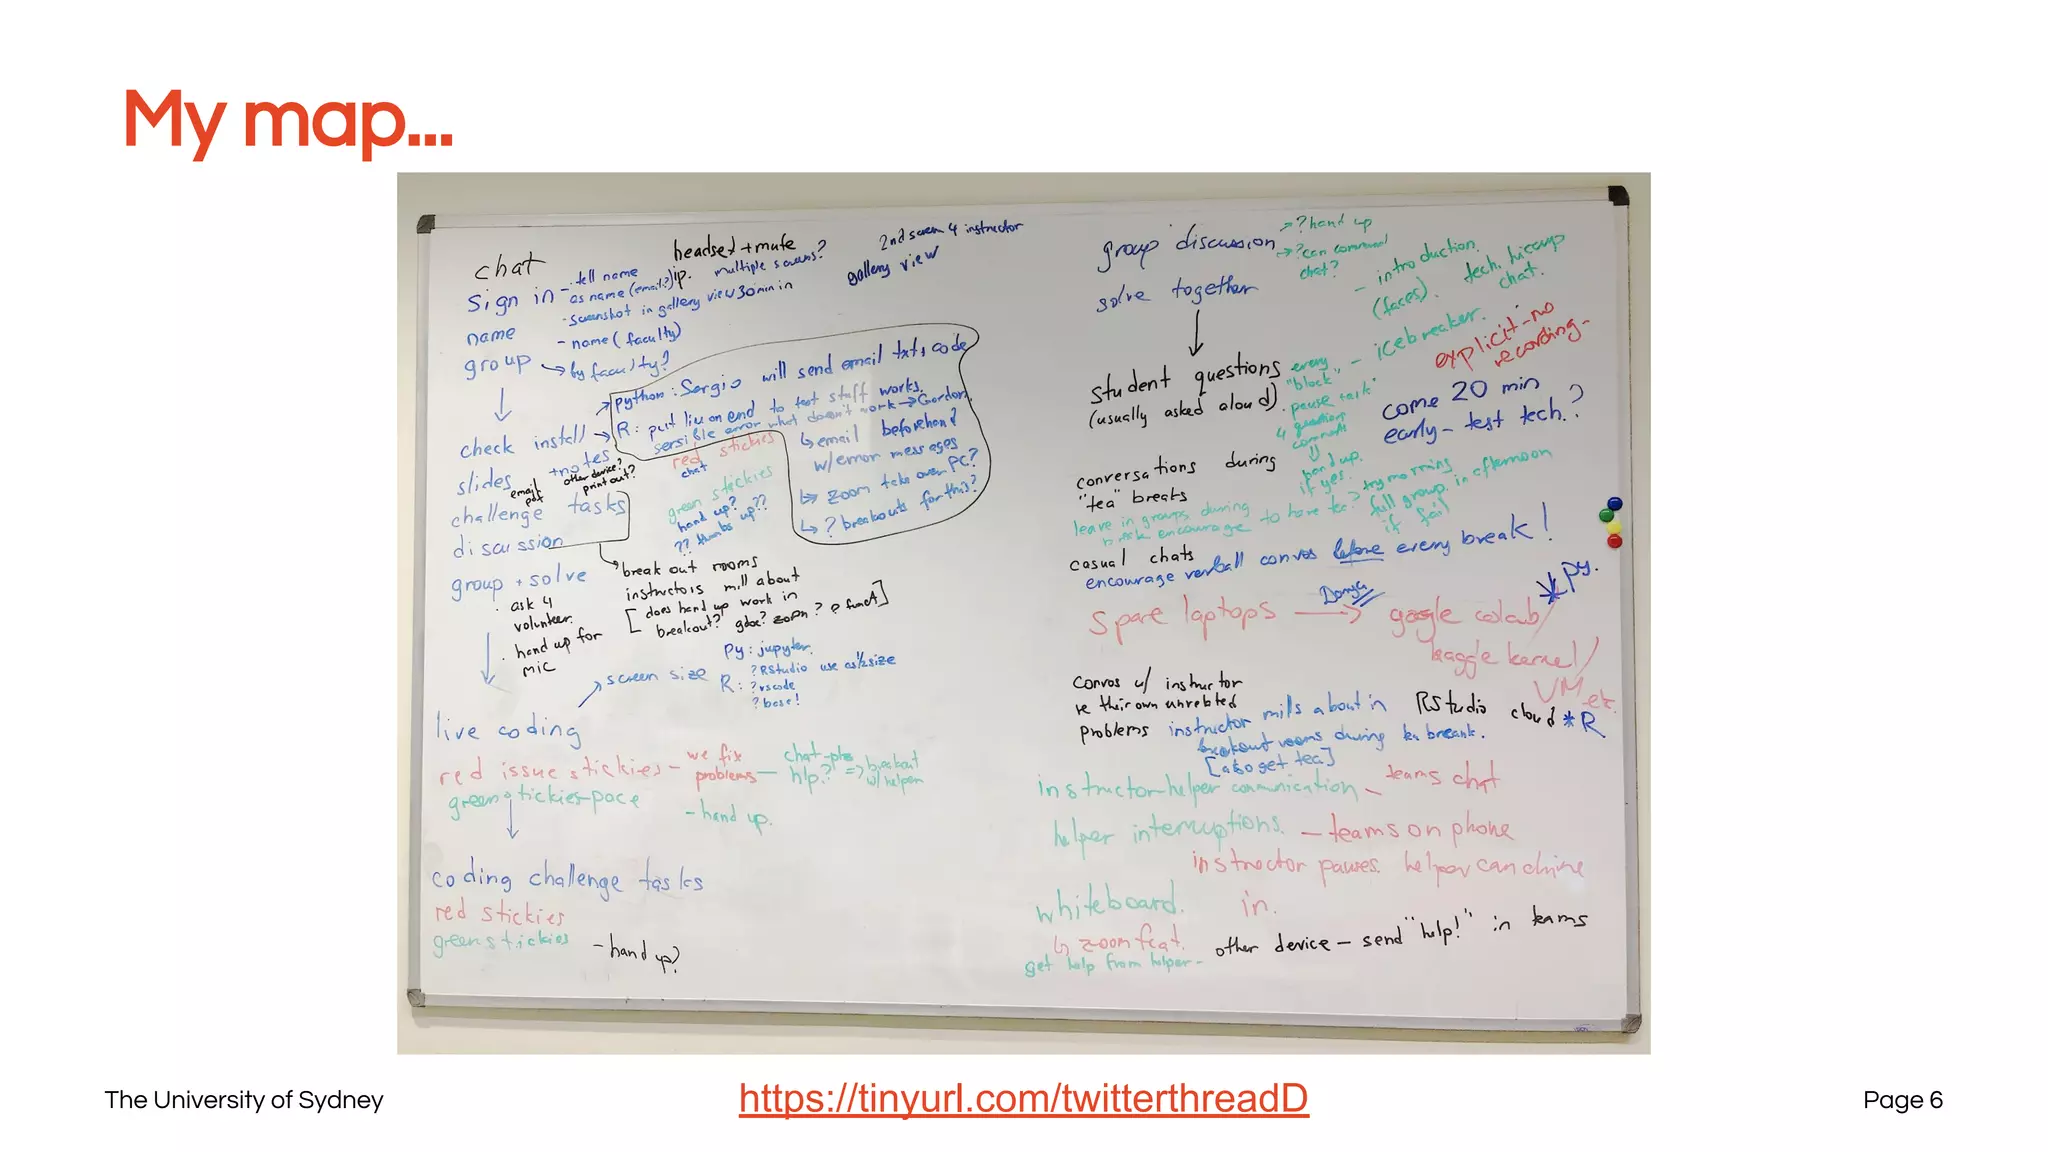 My map...
chat
headset + mute
2nd screen 4 instructor
sign in - tell name
as name (email?)
multiple screens?
gallery view
- screenshot in gallery view 30 min in
name
- name (faculty)
group
by faculty?
check install
python: Sergio will send email txt, code
R: put on end to test stuff works.
sensible error what doesn't work → Gordon.
red stickies
chat
↳ email beforehand
w/error messages
↳ zoom take over PC?
↳ ? breakouts for this?
slides + notes
email
pdf
other device?
print out?
green stickies
hand up?
?? thumbs up??
challenge tasks
discussion
group + solve
break out rooms
instructors mill about
[does hand up work in
breakout? gdoc? zoom? funct]
· ask 4
volunteer.
· hand up for
mic
screen size
Py: jupyter.
R: ? RStudio use as 1/2 size
? vscode
? base!
live coding
red issue stickies - we fix
problems
chat
hlp? => breakout
w/ helper
green stickies-pace
- hand up.
coding challenge tasks
red stickies
green stickies
- hand up?
group discussion
→ ? hand up
→ ? can command
chat?
solve together
- introduction.
(faces). tech. hiccup
chat.
student questions
(usually asked aloud).
every
"block" - icebreaker.
pause + ask
4 questions
comments
hand up.
if yes.
explicit - no
recording -
come 20 min
early - test tech.?
conversations during
"tea" breaks
leave in groups during
encourage to have tea? try mornings
full group in afternoon
if fail
casual chats
encourage verball convos before every break!
spare laptops → google colab/
* py.
kaggle kernel/
VM etc.
convos w/ instructor
re their own unrelated
problems
instructor mills about in
breakout rooms during tea break.
[also get tea]
RStudio cloud * R
instructor-helper communication - teams chat
helper interruptions. - teams on phone
instructor pauses. helper can chime
in.
whiteboard.
↳ zoom feat.
get help from helper -
other device - send "help!" in teams
The University of Sydney
https://tinyurl.com/twitterthreadD
Page 6